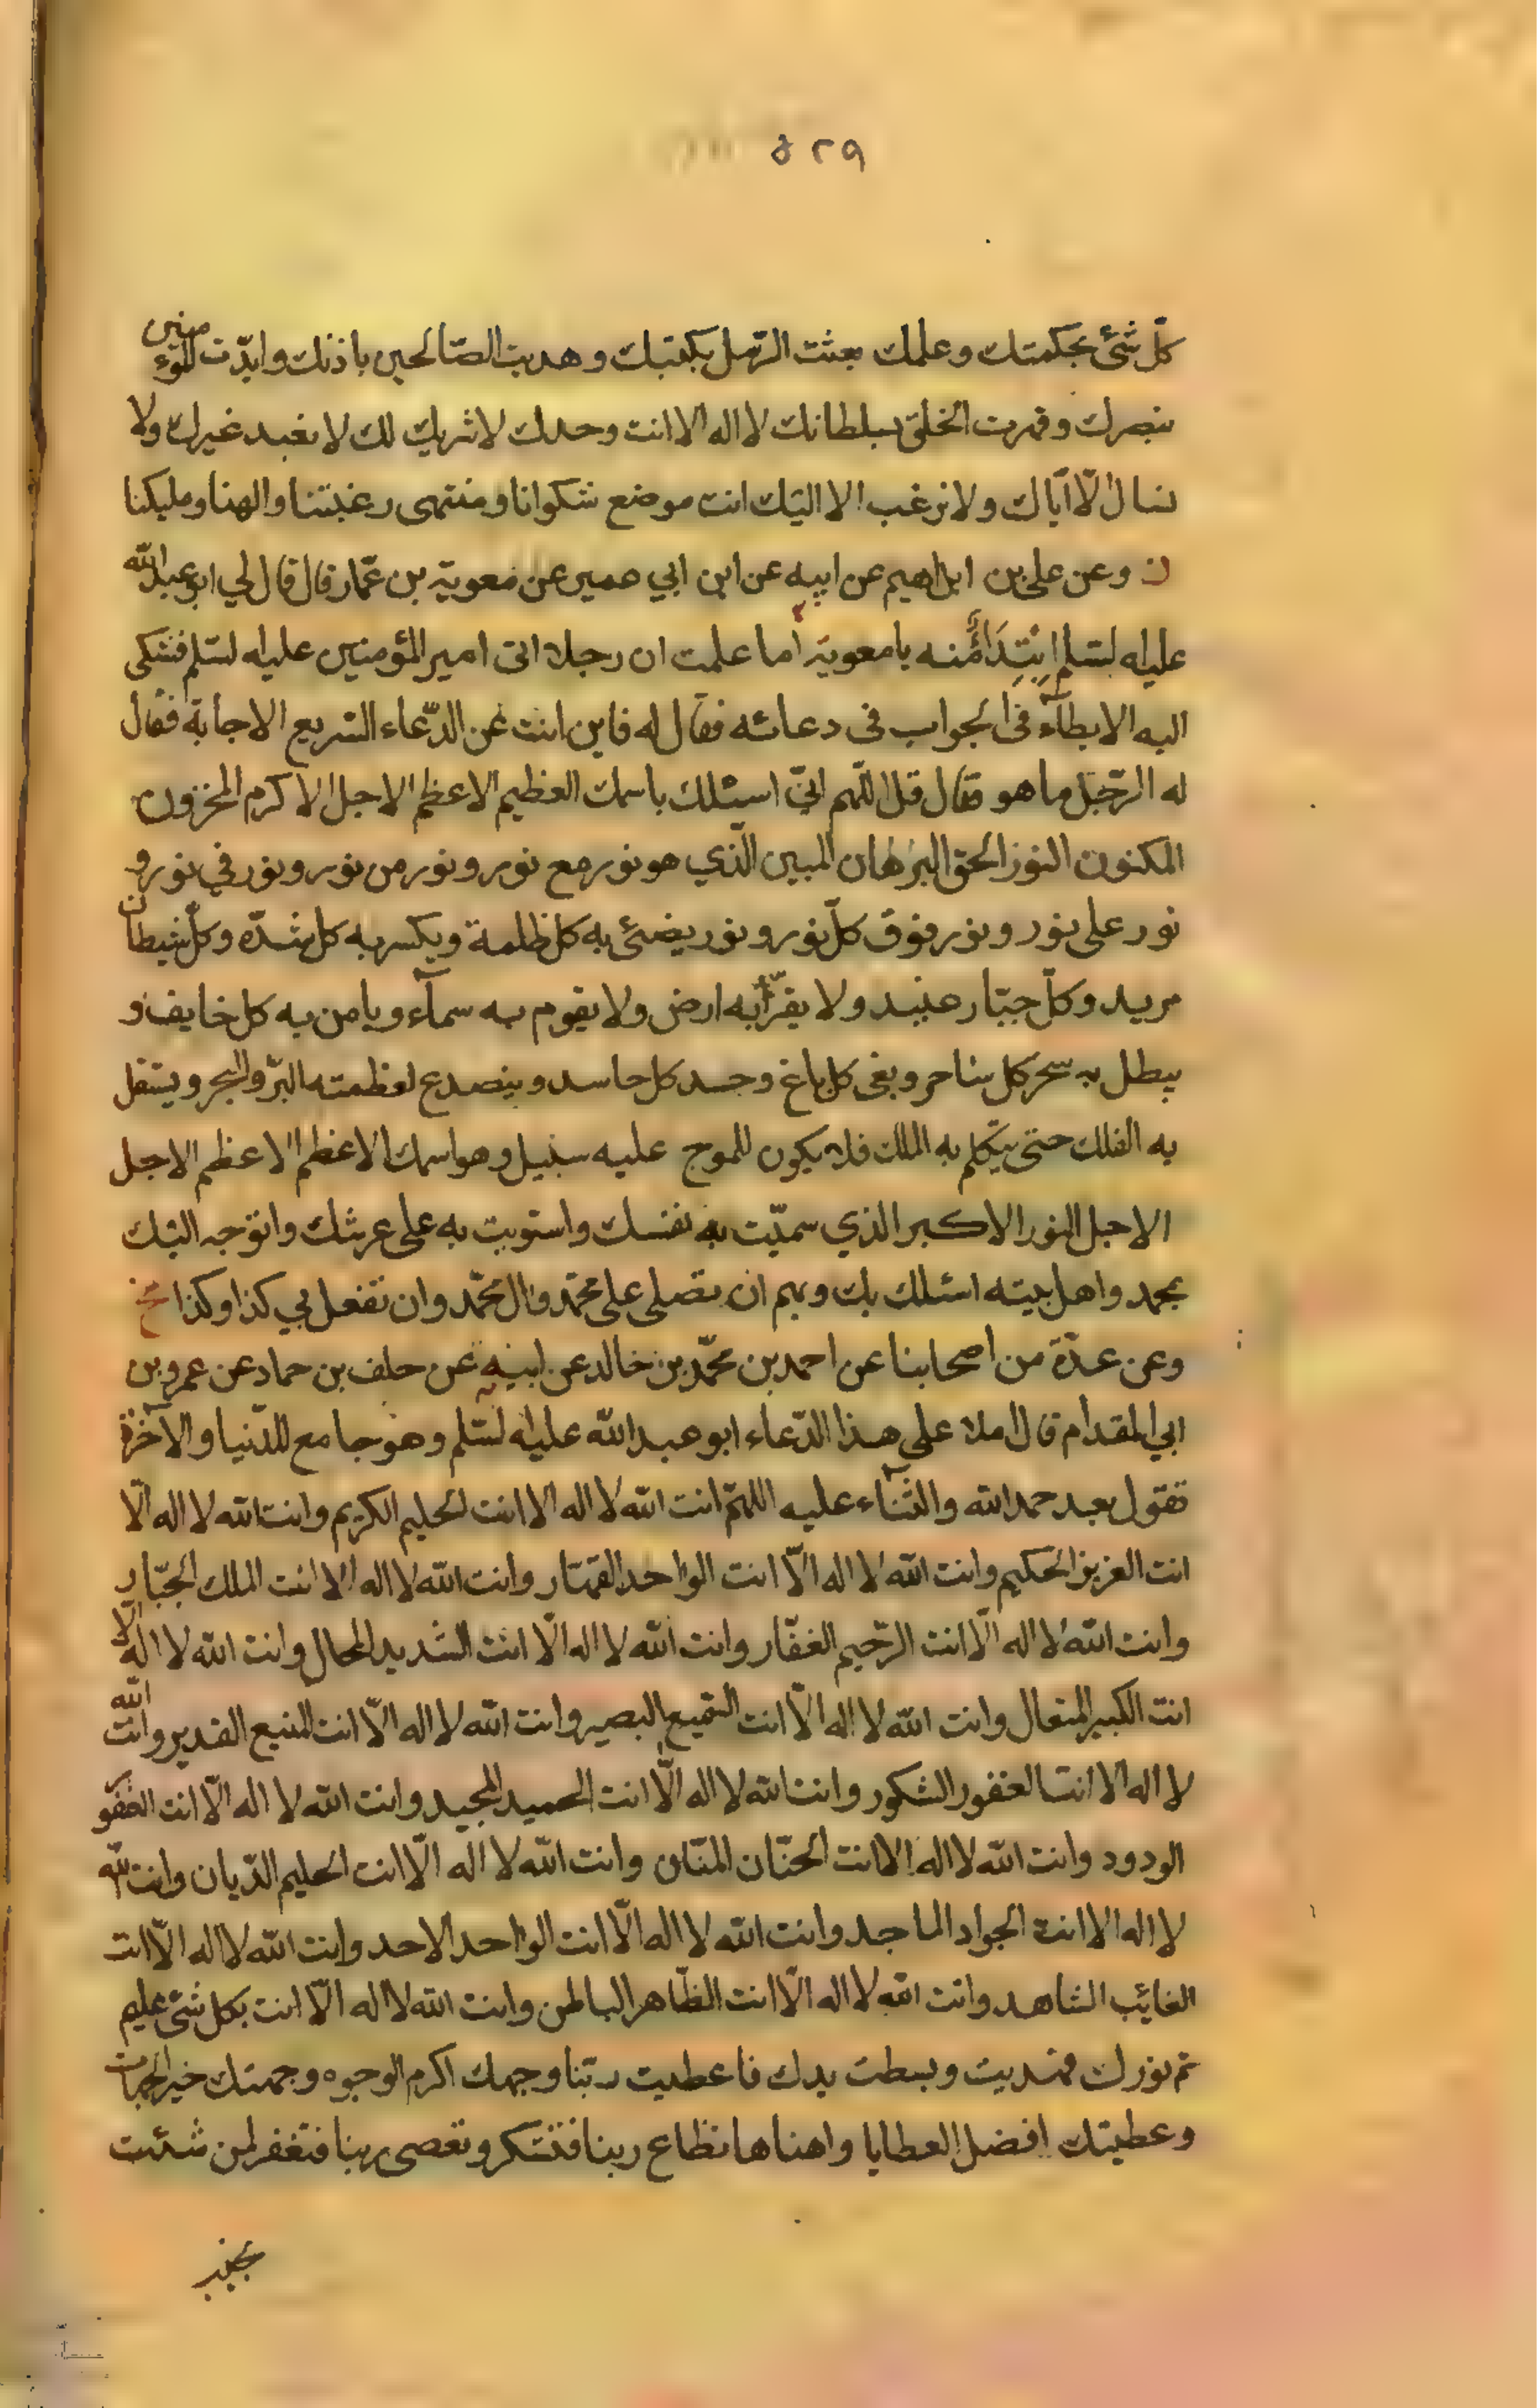 ٥٢٩
كلّ شئ بحكمتك وعلمك بعثت الرّسل بكتبك وهديت الصّالحين باذنك وايّدت المؤمنين
بنصرك وقهرت الخلق بسلطانك لا اله الا انت وحدك لا شريك لك لا نعبد غيرك ولا
نسال الّا ايّاك ولا نرغب الا اليك انت موضع شكوانا ومنتهى رغبتنا والهنا ومليكنا
وعن على بن ابراهيم عن ابيه عن ابن ابي عمير عن معوية بن عمّار قال قال لي ابو عبد الله
عليه لسّلم ابْتِدَاءً منه يا معوية اما علمت ان رجلا اتى امير المؤمنين عليه لسّلم فشكى
اليه الابطآء فى الجواب فى دعائه فقال له فاين انت عن الدّعاء السّريع الاجابة فقال
له الرّجل ما هو قال قل اللّهم انّي اسئلك باسمك العظيم الاعظم الاجل الاكرم المخزون
المكنون النور الحق البرهان المبين الّذي هو نور مع نور ونور من نور ونور في نور و
نور على نور ونور فوق كلّ نور ونور يضئ به كل ظلمة ويكسر به كل شدّه وكلّ شيطان
مريد وكلّ جبّار عنيد ولا يقرّ به ارض ولا يقوم به سمآء ويامن به كل خايف و
يبطل به سحر كل ساحر وبغى كل باغ وحسد كل حاسد ويتصدع لعظمته البرّ والبحر ويستقل
به الفلك حتى يتكلم به الملك فلا يكون للموج عليه سبيل وهو اسمك الاعظم الاعظم الاجل
الاجل النور الاكبر الذي سمّيت به نفسك واستويت به على عرشك واتوجه اليك
بمحمد واهل بيته اسئلك بك وبهم ان تصلى على محمّد وال محمّد وان تفعل بي كذا وكذا
وعن عدّة من اصحابنا عن احمد بن محمّد بن خالد عن ابيه عن خلف بن حماد عن عمرو بن
ابي المقدام قال املا على هذا الدّعاء ابو عبد الله عليه لسّلم وهو جامع للدّنيا والآخرة
تقول بعد حمد الله والثّنآء عليه اللهمّ انت الله لا اله الا انت الحليم الكريم وانت الله لا اله الّا
انت العزيز الحكيم وانت الله لا اله الّا انت الواحد القهّار وانت الله لا اله الا انت الملك الجبّار
وانت الله لا اله الّا انت الرّحيم الغفّار وانت الله لا اله الّا انت الشديد المحال وانت الله لا اله الّا
انت الكبير المتعال وانت الله لا اله الّا انت السّميع البصير وانت الله لا اله الّا انت المنيع القدير وانت الله
لا اله الا انت الغفور الشكور وانت الله لا اله الّا انت الحميد المجيد وانت الله لا اله الّا انت الغفور
الودود وانت الله لا اله الا انت الحنّان المنّان وانت الله لا اله الّا انت الحليم الدّيان وانت الله
لا اله الا انت الجواد الماجد وانت الله لا اله الّا انت الواحد الاحد وانت الله لا اله الّا انت
الغائب الشاهد وانت الله لا اله الّا انت الظّاهر الباطن وانت الله لا اله الّا انت بكل شئ عليم
تم نورك فهديت وبسطت يدك فاعطيت ربّنا وجهك اكرم الوجوه وجهتك خير الجهات
وعطيتك افضل العطايا واهناها تطاع ربنا فتشكر وتعصى ربنا فتغفر لمن شئت